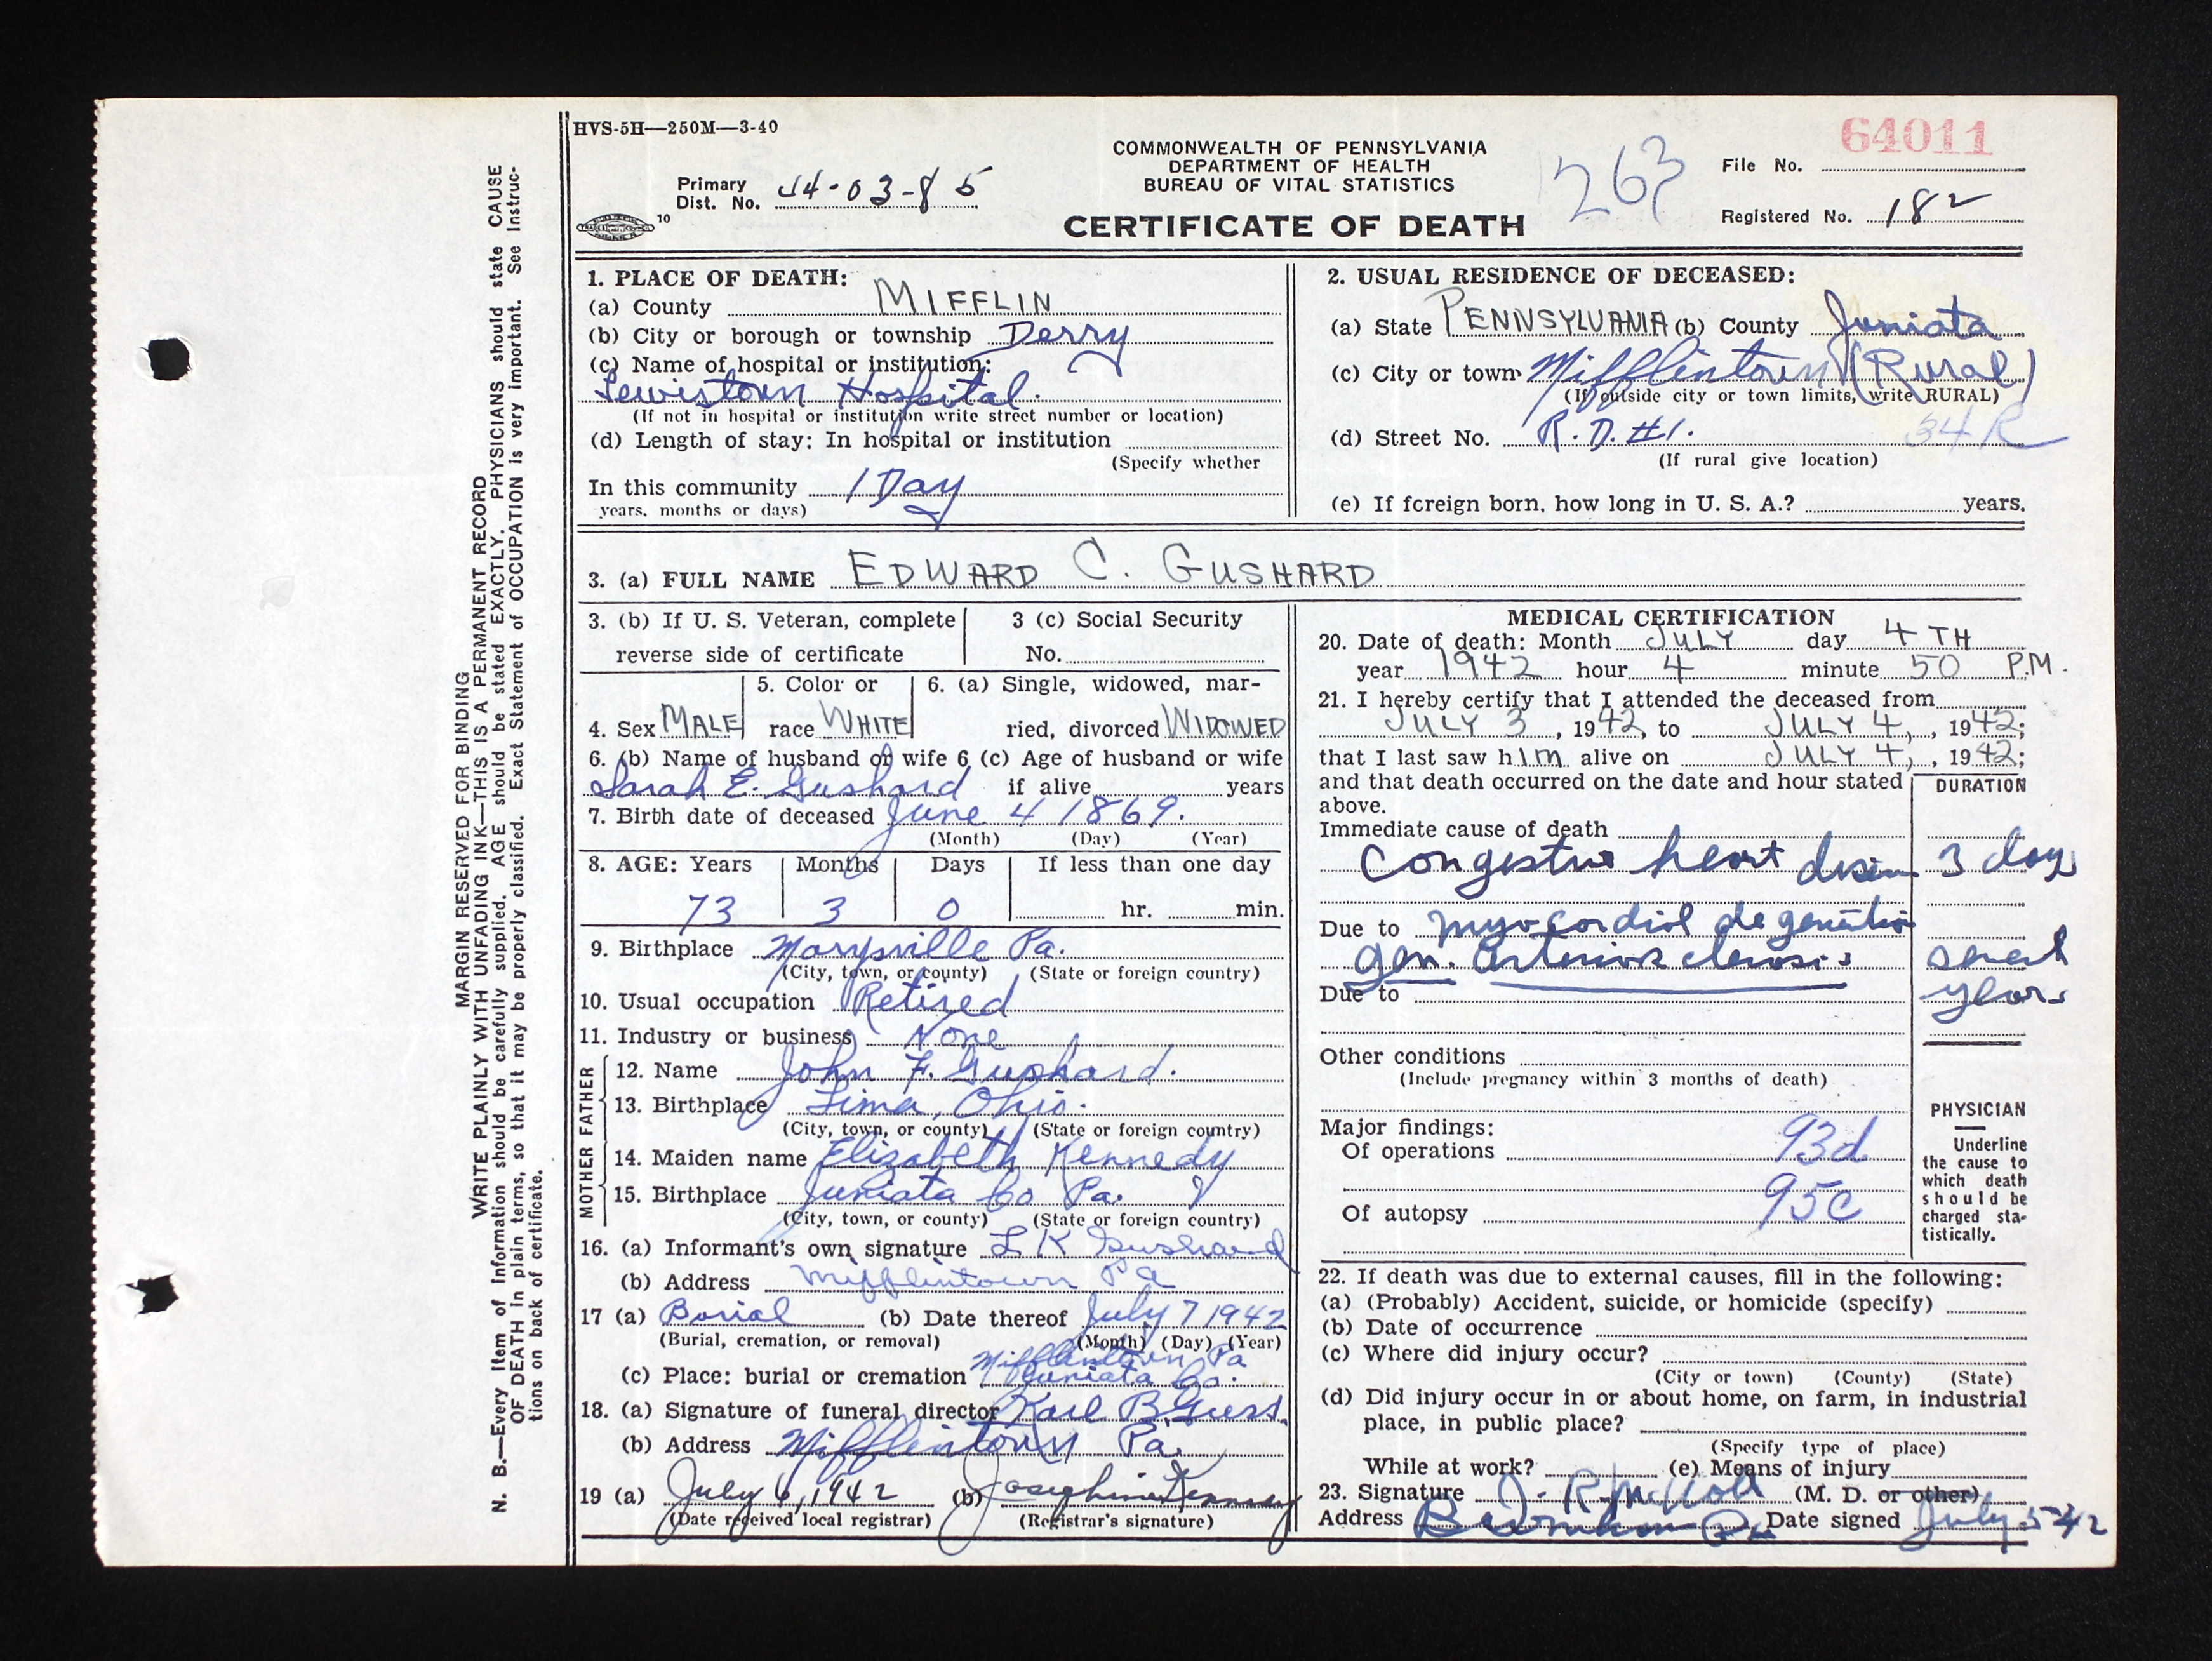 HVS-5H—250M—3-40
COMMONWEALTH OF PENNSYLVANIA
DEPARTMENT OF HEALTH
BUREAU OF VITAL STATISTICS
CERTIFICATE OF DEATH
Primary Dist. No. 44-03-85
10
263
File No. 64011
Registered No. 182
MARGIN RESERVED FOR BINDING
WRITE PLAINLY WITH UNFADING INK—THIS IS A PERMANENT RECORD
N. B.—Every item of information should be carefully supplied. AGE should be stated EXACTLY. PHYSICIANS should state CAUSE
OF DEATH in plain terms, so that it may be properly classified. Exact Statement of OCCUPATION is very important. See Instruc-
tions on back of certificate.
1. PLACE OF DEATH:
(a) County MIFFLIN
(b) City or borough or township Derry
(c) Name of hospital or institution:
Lewistown Hospital.
(If not in hospital or institution write street number or location)
(d) Length of stay: In hospital or institution
(Specify whether
In this community 1 Day
years, months or days)
2. USUAL RESIDENCE OF DECEASED:
(a) State PENNSYLVANIA (b) County Juniata
(c) City or town Mifflintown (Rural)
(If outside city or town limits, write RURAL)
(d) Street No. R.D. #1.
34 R
(If rural give location)
(e) If foreign born, how long in U. S. A.? years.
3. (a) FULL NAME EDWARD C. GUSHARD
3. (b) If U. S. Veteran, complete
reverse side of certificate
3 (c) Social Security
No.
4. Sex MALE
5. Color or
race WHITE
6. (a) Single, widowed, mar-
ried, divorced WIDOWED
6. (b) Name of husband or wife
Sarah E. Gushard
6 (c) Age of husband or wife
if alive years
7. Birth date of deceased June 4 1869.
(Month) (Day) (Year)
8. AGE: Years Months Days If less than one day
73 3 0 hr. min.
9. Birthplace Marysville Pa.
(City, town, or county) (State or foreign country)
10. Usual occupation Retired
11. Industry or business None
FATHER
12. Name John F. Gushard.
13. Birthplace Lima, Ohio.
(City, town, or county) (State or foreign country)
MOTHER
14. Maiden name Elizabeth Kennedy
15. Birthplace Juniata Co Pa.
(City, town, or county) (State or foreign country)
16. (a) Informant's own signature L K Gushard
(b) Address Mifflintown Pa
17 (a) Burial (b) Date thereof July 7 1942
(Burial, cremation, or removal) (Month) (Day) (Year)
Mifflintown Pa
(c) Place: burial or cremation Juniata Co.
18. (a) Signature of funeral director Karl B Guss
(b) Address Mifflintown Pa.
19 (a) July 6, 1942 (b) Josephine Kennedy
(Date received local registrar) (Registrar's signature)
MEDICAL CERTIFICATION
20. Date of death: Month JULY day 4TH
year 1942 hour 4 minute 50 P.M.
21. I hereby certify that I attended the deceased from
JULY 3, 1942, to JULY 4, , 1942;
that I last saw him alive on JULY 4, , 1942;
and that death occurred on the date and hour stated
above.
DURATION
Immediate cause of death
Congestive heart disease 3 days
Due to myocardial degeneration
gen. arteriosclerosis several
years
Due to
Other conditions
(Include pregnancy within 3 months of death)
Major findings:
Of operations 93d
Of autopsy 95c
PHYSICIAN
Underline
the cause to
which death
should be
charged sta-
tistically.
22. If death was due to external causes, fill in the following:
(a) (Probably) Accident, suicide, or homicide (specify)
(b) Date of occurrence
(c) Where did injury occur?
(City or town) (County) (State)
(d) Did injury occur in or about home, on farm, in industrial
place, in public place?
(Specify type of place)
While at work? (e) Means of injury
23. Signature J. R. (M. D. or other)
Address Pa Date signed July 5 42